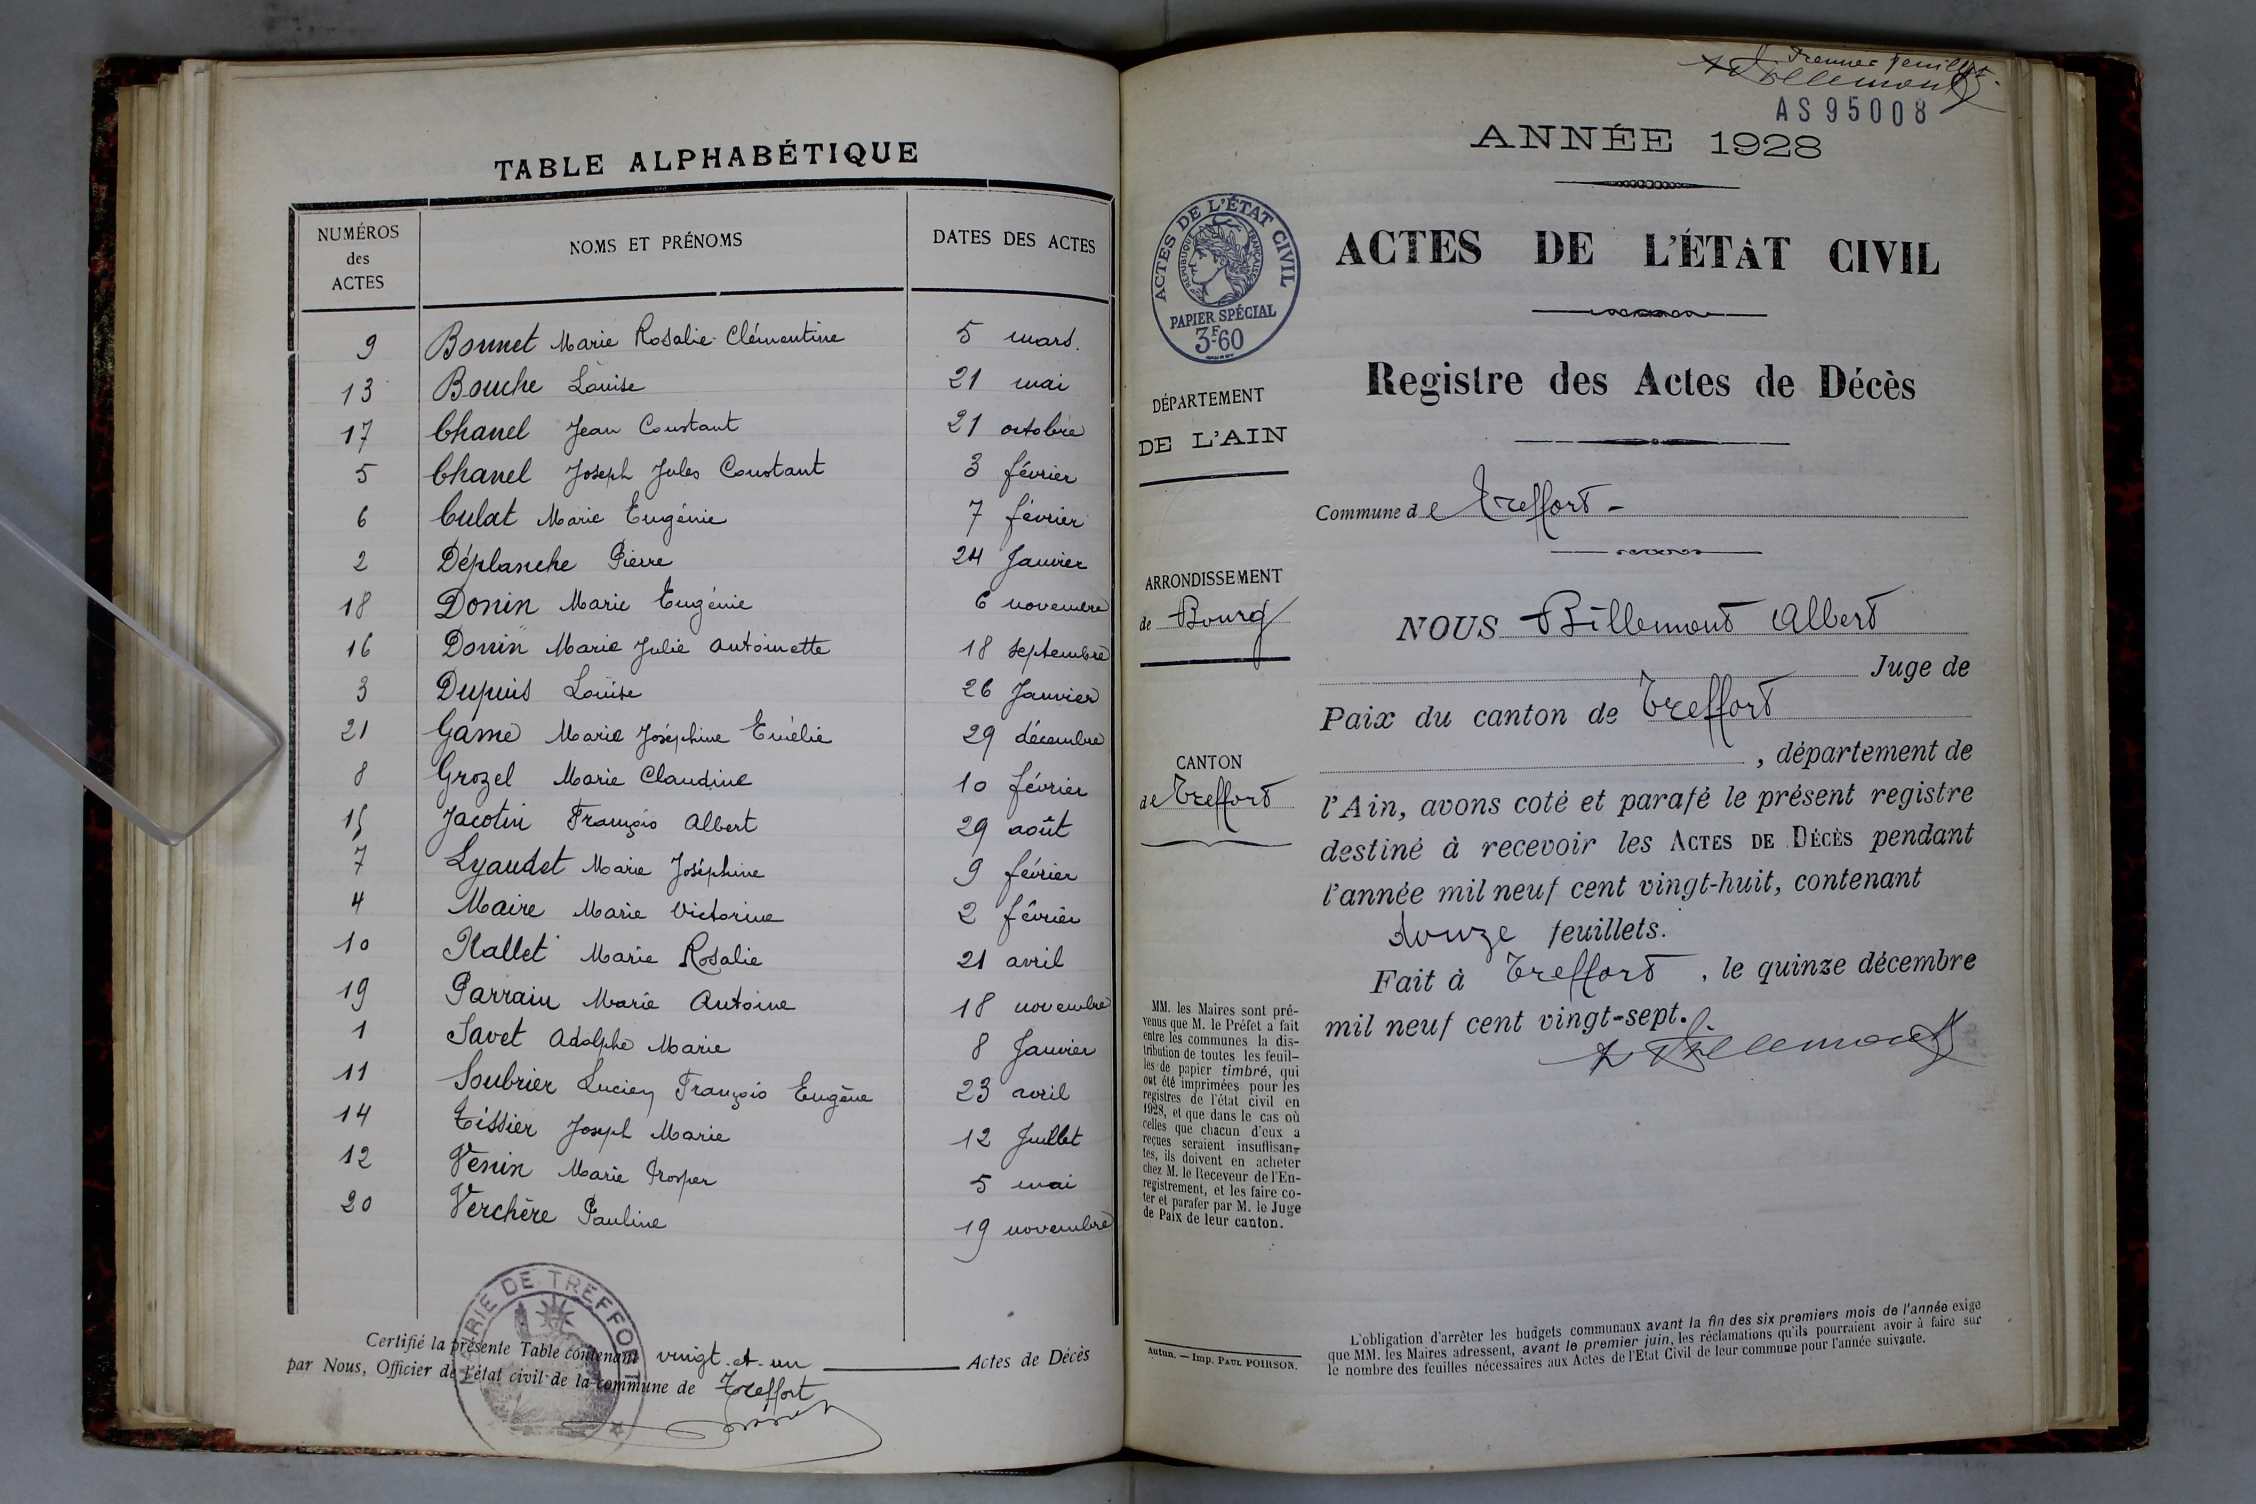 TABLE ALPHABÉTIQUE
NUMÉROS des ACTES
NOMS ET PRÉNOMS
DATES DES ACTES
9 Bonnet Marie Rosalie Clémentine 5 mars.
13 Bouche Louise 21 mai
17 Chanel Jean Constant 21 octobre
5 Chanel Joseph Jules Constant 3 février
6 Culat Marie Eugénie 7 février
2 Déplanche Pierre 24 Janvier
18 Donin Marie Eugénie 6 novembre
16 Donin Marie Julie Antoinette 18 septembre
3 Dupuis Louise 26 Janvier
21 Game Marie Joséphine Emélie 29 décembre
8 Grozel Marie Claudine 10 février
15 Jacotin François Albert 29 août
7 Lyaudet Marie Joséphine 9 février
4 Maire Marie Victorine 2 février
10 Nallet Marie Rosalie 21 avril
19 Parrain Marie Antoine 18 novembre
1 Savet Adolphe Marie 8 Janvier
11 Soubrier Lucien François Eugène 23 avril
14 Tissier Joseph Marie 12 Juillet
12 Venin Marie Prosper 5 mai
20 Verchère Pauline 19 novembre
MAIRIE DE TREFFORT
Certifié la présente Table contenant vingt-et-un Actes de Décès
par Nous, Officier de l'état civil de la commune de Treffort
Premier feuillet.
ABillemont
AS95008
ANNÉE 1928
ACTES DE L'ÉTAT CIVIL
RÉPUBLIQUE FRANÇAISE
PAPIER SPÉCIAL
3F60
ACTES DE L'ÉTAT CIVIL
Registre des Actes de Décès
DÉPARTEMENT
DE L'AIN
ARRONDISSEMENT
de Bourg
CANTON
de Treffort
MM. les Maires sont pré-
venus que M. le Préfet a fait
entre les communes la dis-
tribution de toutes les feuil-
les de papier timbré, qui
ont été imprimées pour les
registres de l'état civil en
1928, et que dans le cas où
celles que chacun d'eux a
reçues seraient insuffisan-
tes, ils doivent en acheter
chez M. le Receveur de l'En-
registrement, et les faire co-
ter et parafer par M. le Juge
de Paix de leur canton.
Autun. — Imp. PAUL POIRSON.
Commune de Treffort -
NOUS Billemont Albert
Juge de
Paix du canton de Treffort
, département de
l'Ain, avons coté et parafé le présent registre
destiné à recevoir les ACTES DE DÉCÈS pendant
l'année mil neuf cent vingt-huit, contenant
douze feuillets.
Fait à Treffort, le quinze décembre
mil neuf cent vingt-sept.
ABillemont
L'obligation d'arrêter les budgets communaux avant la fin des six premiers mois de l'année exige
que MM. les Maires adressent, avant le premier juin, les réclamations qu'ils pourraient avoir à faire sur
le nombre des feuilles nécessaires aux Actes de l'Etat Civil de leur commune pour l'année suivante.